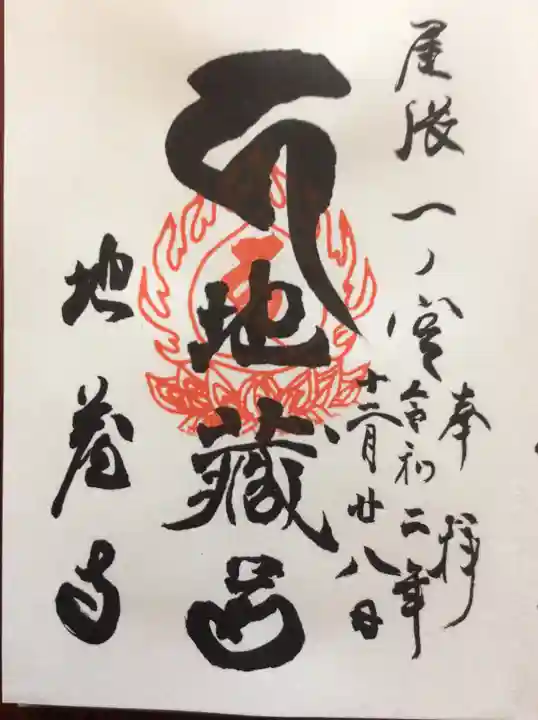 尾張一ノ宮
奉拝
令和二年
十二月廿八日
地蔵尊
地蔵寺